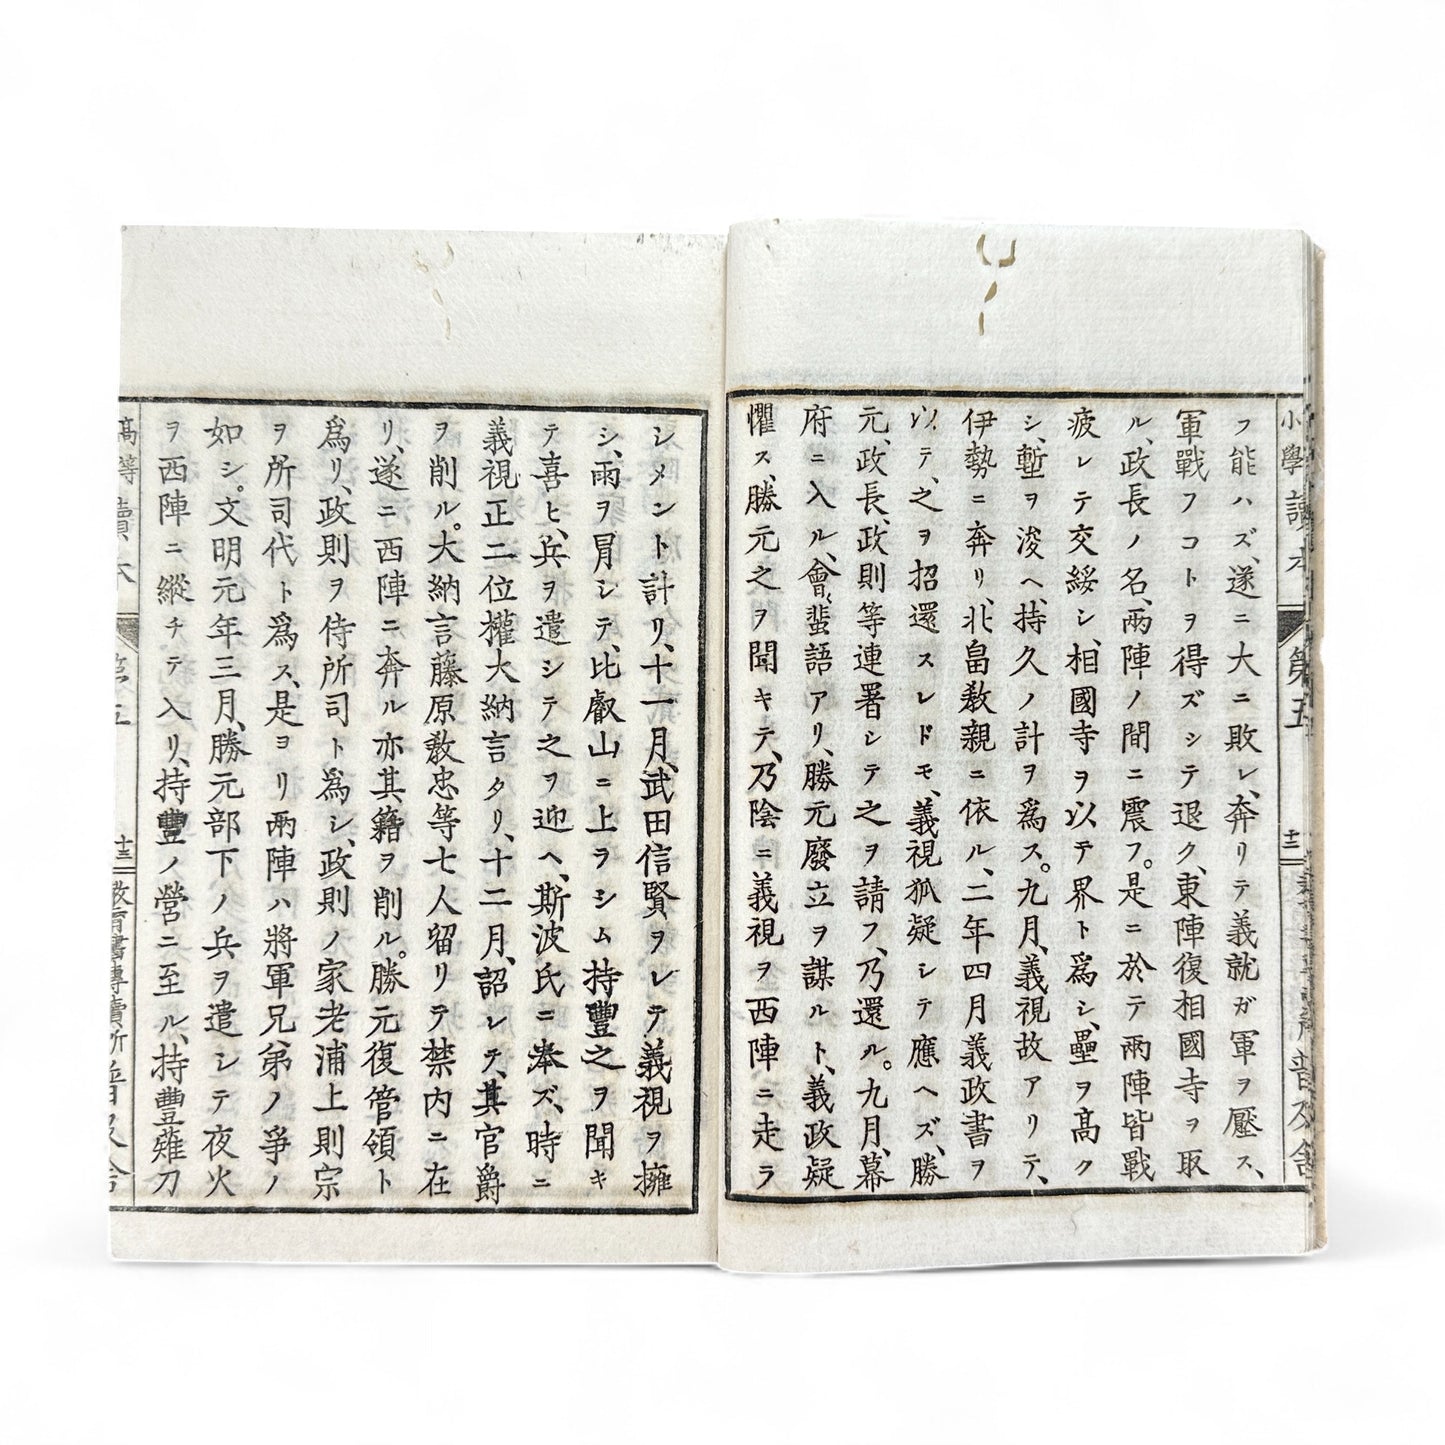 小學讀本
第五
フ能ハズ、遂ニ大ニ敗レ、奔リテ義就ガ軍ヲ壓ス、
軍戰フコトヲ得ズシテ退ク、東陣復相國寺ヲ取
ル、政長ノ名、兩陣ノ間ニ震フ。是ニ於テ兩陣皆戰
疲レテ交綏シ、相國寺ヲ以テ界ト爲シ、壘ヲ高ク
シ、塹ヲ浚ヘ、持久ノ計ヲ爲ス。九月、義視故アリテ、
伊勢ニ奔リ、北畠敎親ニ依ル、二年四月義政書ヲ
以テ、之ヲ招還スレドモ、義視狐疑シテ應ヘズ、勝
元、政長、政則等連署シテ之ヲ請フ、乃還ル。九月、幕
府ニ入ル、會蜚語アリ、勝元廢立ヲ謀ルト、義政疑
懼ス、勝元之ヲ聞キテ、乃陰ニ義視ヲ西陣ニ走ラ
シメント計リ、十一月、武田信賢ヲシテ義視ヲ擁
シ、雨ヲ冒シテ、比叡山ニ上ラシム持豐之ヲ聞キ
テ喜ヒ、兵ヲ遣シテ之ヲ迎ヘ、斯波氏ニ奉ズ、時ニ
義視正二位權大納言タリ、十二月、詔シテ、其官爵
ヲ削ル。大納言藤原敎忠等七人留リテ禁内ニ在
リ、遂ニ西陣ニ奔ル亦其籍ヲ削ル。勝元復管領ト
爲リ、政則ヲ侍所司ト爲シ、政則ノ家老浦上則宗
ヲ所司代ト爲ス、是ヨリ兩陣ハ將軍兄弟ノ爭ノ
如シ。文明元年三月、勝元部下ノ兵ヲ遣シテ夜火
ヲ西陣ニ縱チテ入リ、持豐ノ營ニ至ル、持豐薙刀
高等讀本
第五
十三
敎育書專賣所普及舍